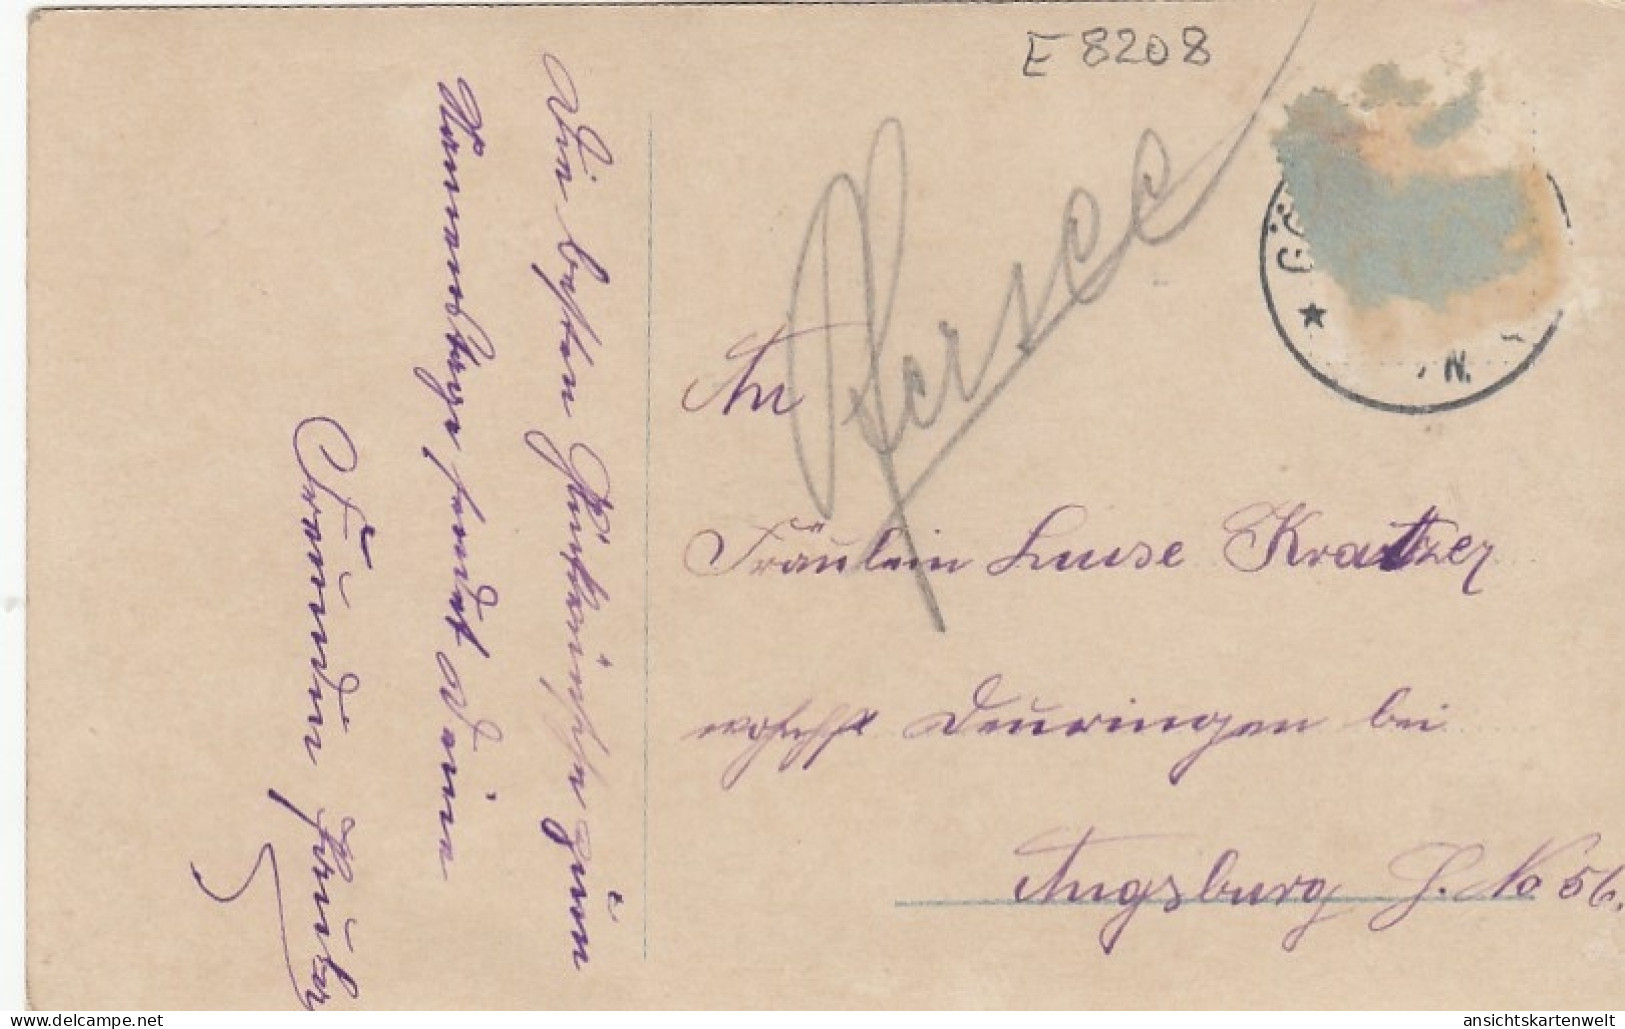 E 8208
Die besten Glückwünsche zum
Namenstage sendet Dir
Freundin
An
Fräulein Luise Kratzer
wohnhft Deuringen bei
Augsburg H. No 56.
GÖ
N.
www.delcampe.net
ansichtskartenwelt